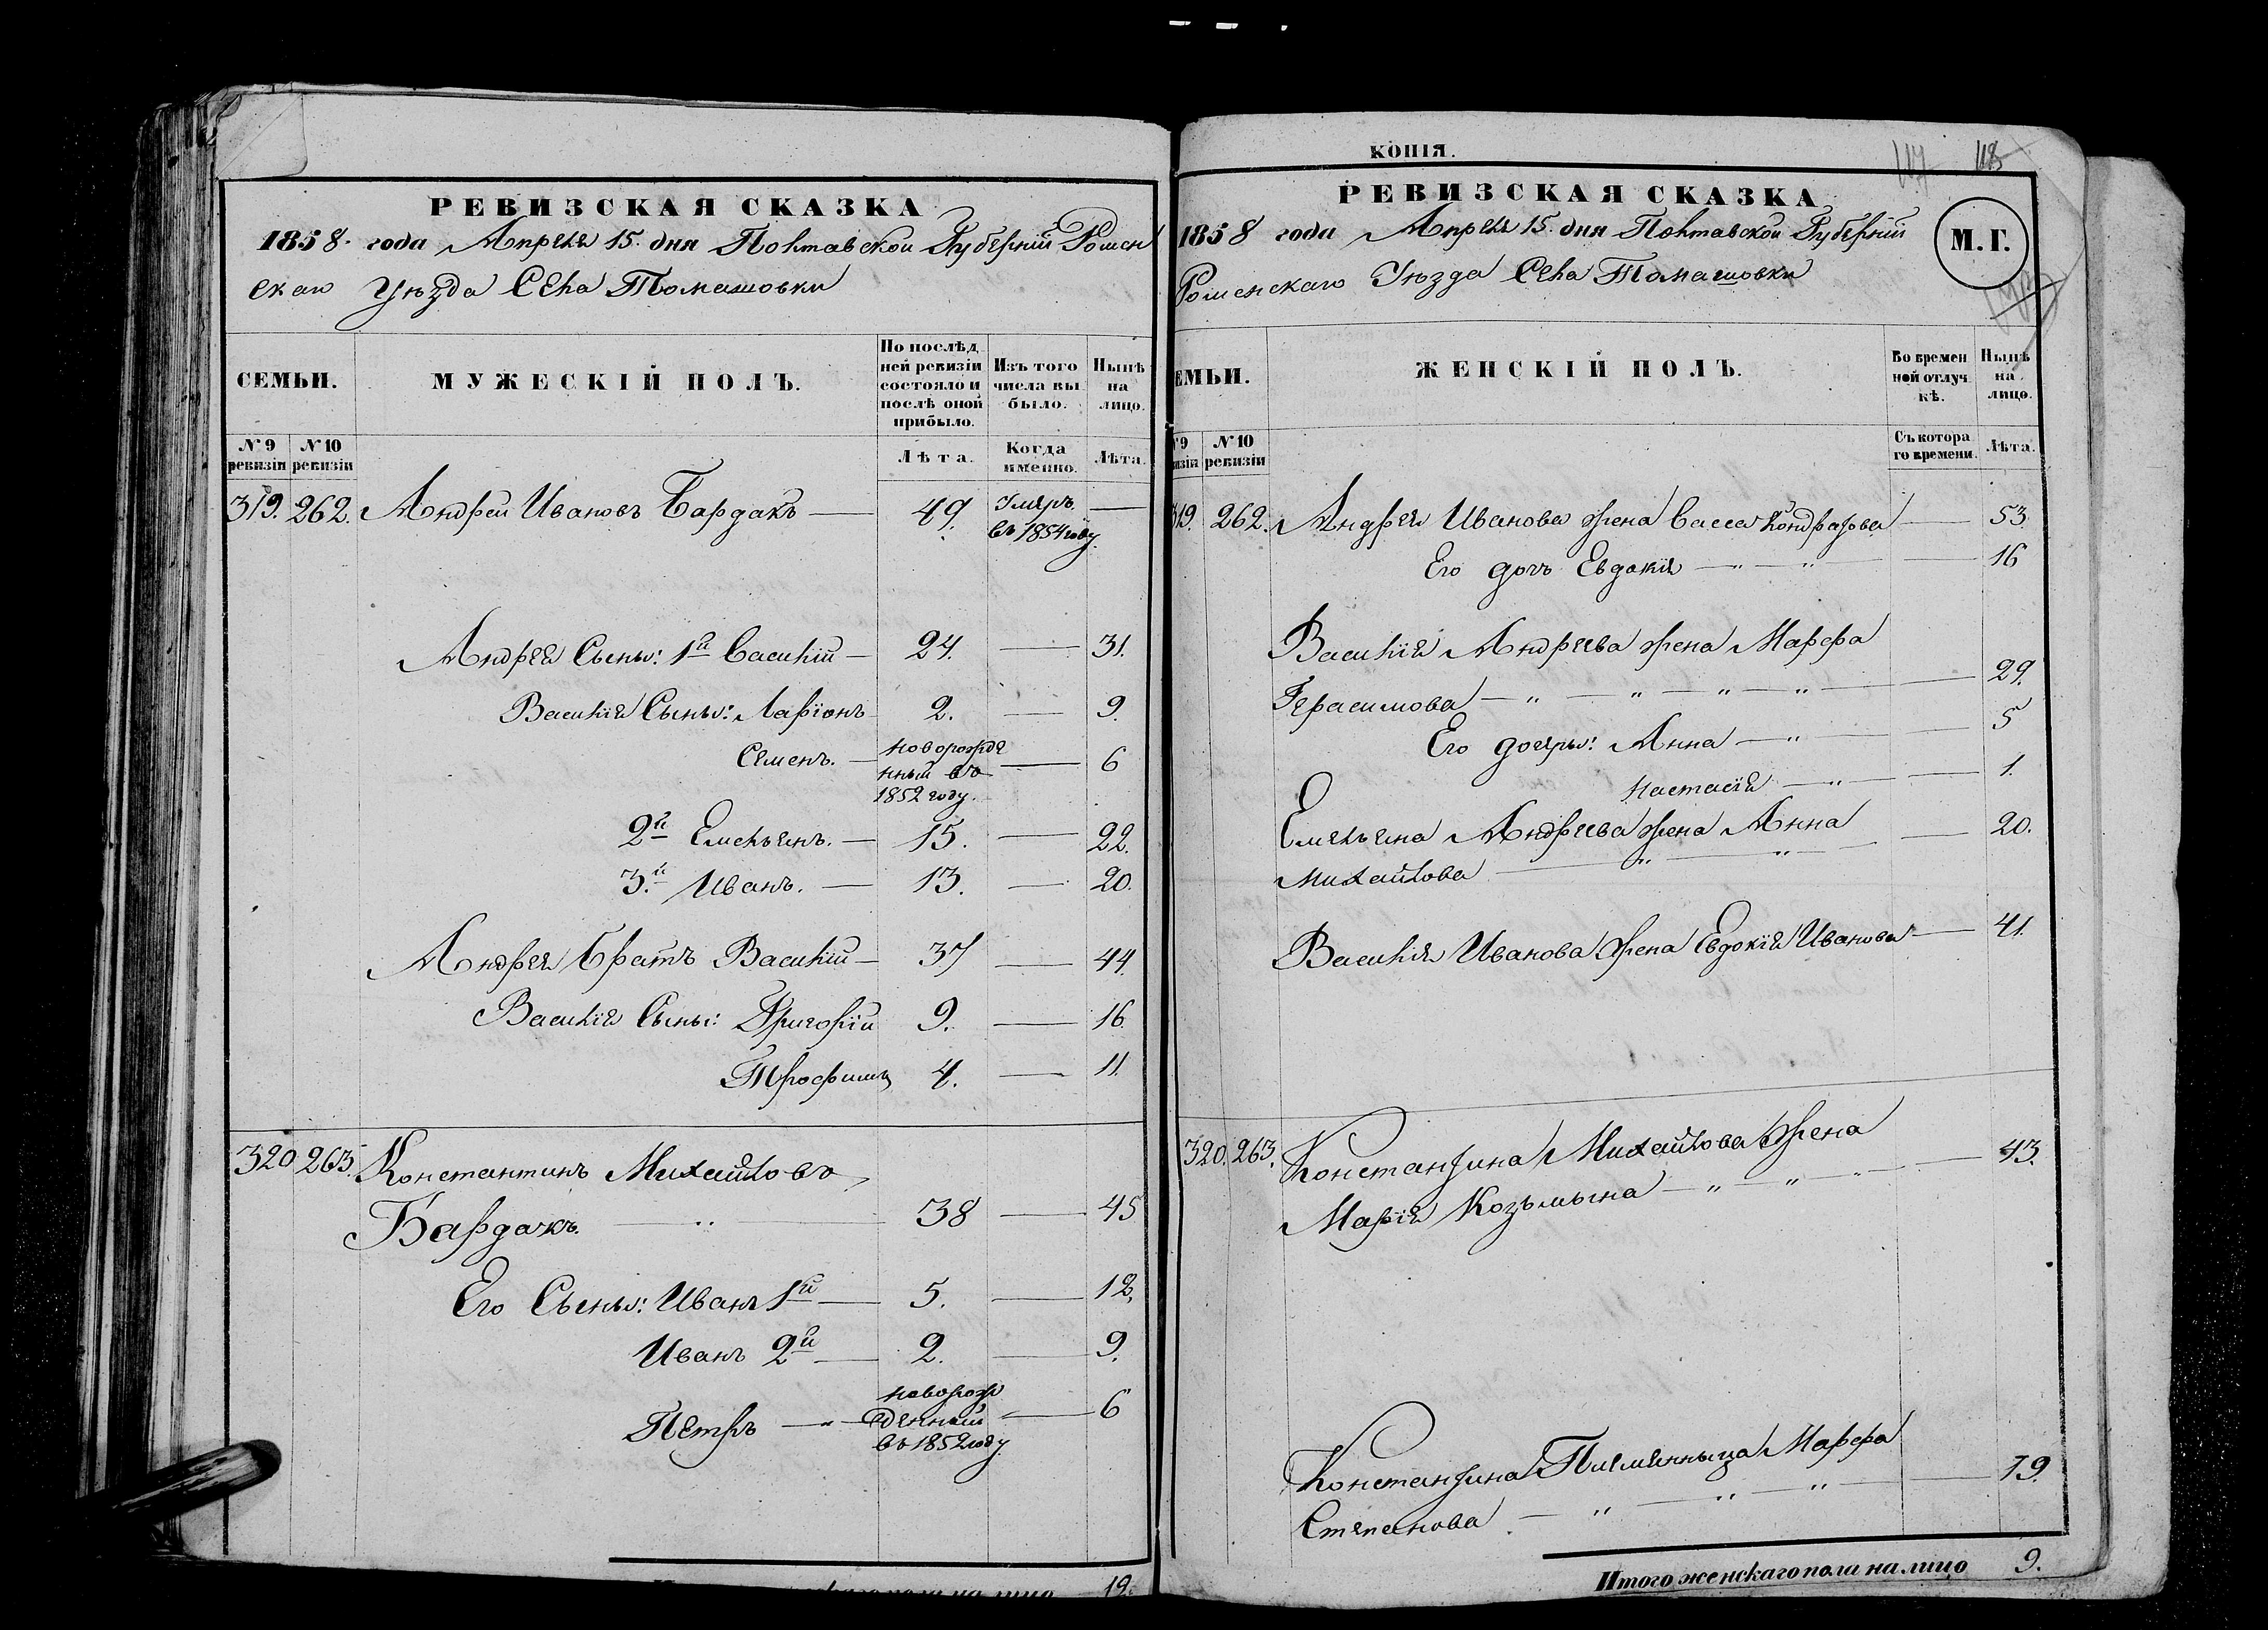 РЕВИЗСКАЯ СКАЗКА
1858. года Апреля 15. дня Полтавской Губернии Ромен
скаго Уѣзда Села Томашовки
СЕМЬИ.
МУЖЕСКІЙ ПОЛЪ.
По послѣд
ней ревизіи
состояло и
послѣ оной
прибыло.
Изъ того
числа вы
было.
Нынѣ
на
лицо.
№ 9 ревизіи
№ 10 ревизіи
Лѣта.
Когда именно.
Лѣта.
319. 262. Андрей Ивановъ Бардакъ — 49. Умеръ въ 1854 году —
Андрея Сыны: 1й Василій — 24. — 31.
Василія Сыны: Ларіонъ 2. — 9.
Семенъ. — новорожде
нный въ — 6
1852 году.
2й Емельянъ. — 15. — 22.
3й Иванъ. — 13. — 20.
Андрея братъ Василій — 37 — 44.
Василія Сыны: Григорій 9. — 16.
Трофимъ 4. — 11.
320 263. Константинъ Михайловъ
Бардакъ. — 38 — 45
Его Сыны: Иванъ 1й — 5. — 12.
Иванъ 2й — 2. — 9.
Петръ — новорож
денный — 6
въ 1852 году
19.
КОПІЯ.
118
РЕВИЗСКАЯ СКАЗКА
1858 года Апреля 15. дня Полтавской Губерніи
Роменскаго Уѣзда Села Томашовки
М.Г.
ЕМЬИ.
ЖЕНСКІЙ ПОЛЪ.
Во времен
ной отлуч
кѣ.
Нынѣ
на
лицо.
№ 10 ревизіи
Съ котора
го времени.
Лѣта.
319. 262. Андрея Иванова жена Васса Кондратова — 53
Его дочь Евдокія — " — " — 16
Василія Андреева жена Марфа
Герасимова — " — " — " — " — 29.
Его дочери: Анна — " — 5
Настасія — " — 1.
Емельяна Андреева жена Анна — 20.
Михайлова — " — " —
Василія Иванова жена Евдокія Иванова — 41.
320. 263. Константина Михайлова жена
Марія Козьмина — " — " — " — 43.
Константина Племянница Марфа
Степанова — " — " — " — 19.
Итого женскаго пола на лицо 9.